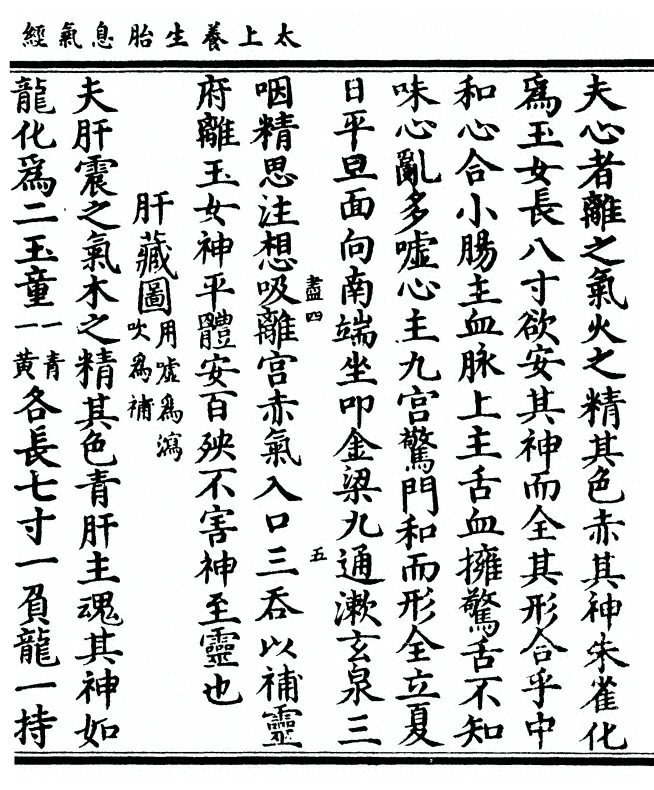 太上養生胎息氣經
夫心者離之氣火之精其色赤其神朱雀化
爲玉女長八寸欲安其神而全其形合乎中
和心合小腸主血脉上主舌血擁驚舌不知
味心亂多噓心主九宮驚門和而形全立夏
日平旦面向南端坐叩金梁九通漱玄泉三
盡四
五
咽精思注想吸離宮赤氣入口三吞以補靈
府離玉女神平體安百殃不害神至靈也
肝藏圖
用噓爲瀉
吹爲補
夫肝震之氣木之精其色青肝主魂其神如
龍化爲二玉童
一青
一黃
各長七寸一負龍一持